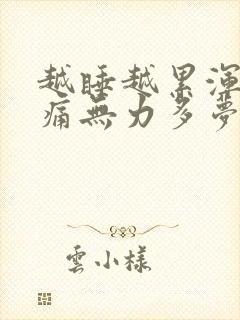 越睡越累渾
痛無力多夢
雲小樣